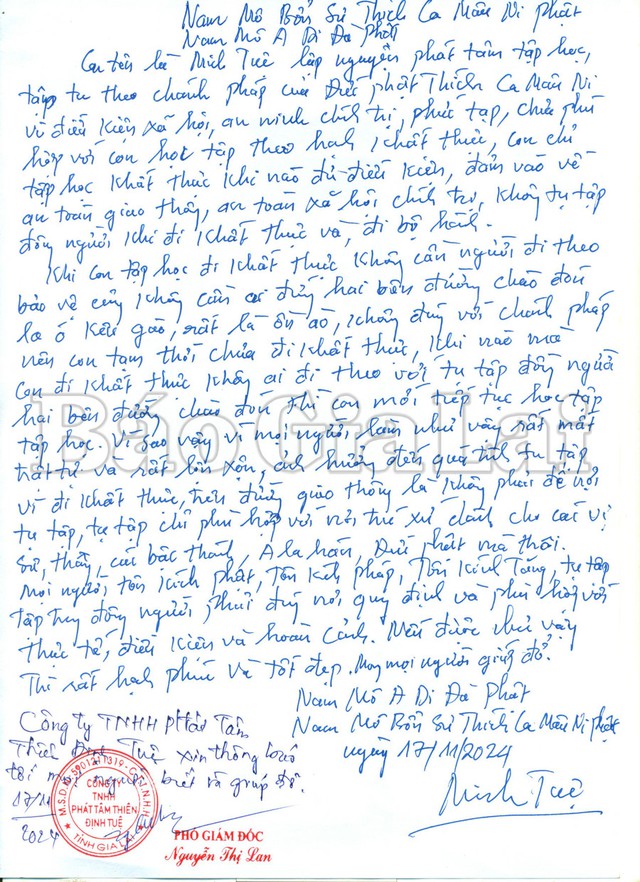 Nam Mô Bổn Sư Thích Ca Mâu Ni Phật
Nam Mô A Di Đà Phật
Con tên là Minh Tuệ lập nguyện phát tâm tập học,
tập tu theo chánh pháp của Đức phật Thích Ca Mâu Ni
vì điều kiện xã hội, an ninh chính trị, phức tạp, chưa phù
hợp với con học tập theo hạnh khất thực, con chỉ
tập học khất thực khi nào đủ điều kiện, đảm vào về
an toàn giao thông, an toàn xã hội chính trị, không tụ tập
đông người khi đi khất thực và, đi bộ hành.
Khi con tập học đi khất thực không cần người đi theo
bảo vệ cũng không cần ai đứng hai bên đường chào đón
la ó kêu gào, rất là ồn ào, không đúng với chánh pháp
nên con tạm thời chưa đi khất thực, khi nào mà
con đi khất thực không ai đi theo với tụ tập đông người
hai bên đường chào đón thì con mới tiếp tục học tập
tập học. Vì sao vậy vì mọi người làm như vậy rất mất
trật tự và rất lộn xộn, ảnh hưởng đến quá trình tu tập
vì đi khất thực, trên đường giao thông là không phải để nơi
tụ tập, tụ tập chỉ phù hợp với nơi trú xứ dành cho các vị
sư, thầy, các bậc thánh, A la hán, Đức phật mà thôi.
Mọi người tôn kính phật, Tôn kính pháp, Tôn kính Tăng, tụ tập
tập huy đông người phải đúng nơi quy định và phù hợp với
thực tế, điều kiện và hoàn cảnh. Nếu được như vậy
Thì rất hạnh phúc và tốt đẹp. Mong mọi người giúp đỡ.
Nam Mô A Di Đà Phật
Nam Mô Bổn Sư Thích Ca Mâu Ni phật
ngày 17/11/2024
Minh Tuệ
Công ty TNHH Phát Tâm
Thiện Định Tuệ xin thông báo
tới mọi người biết và giúp đỡ.
17/11
2024
CÔNG TY
TNHH
PHÁT TÂM THIỆN
ĐỊNH TUỆ
TỈNH GIA LAI
PHÓ GIÁM ĐỐC
Nguyễn Thị Lan
Báo Gia Lai